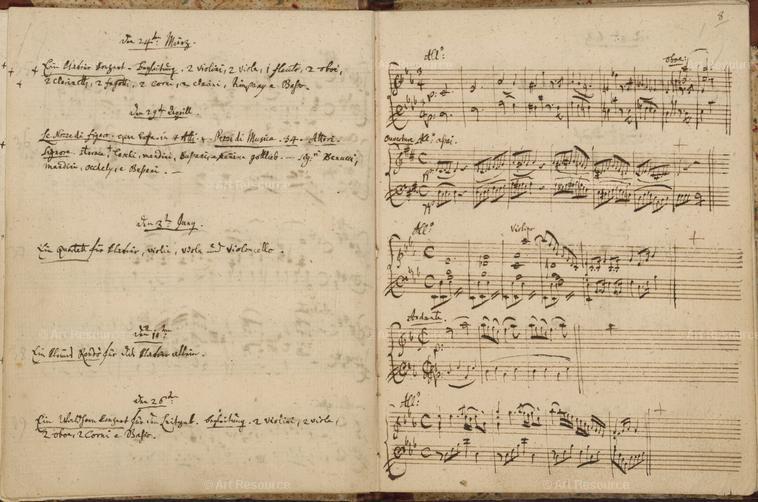 den 24:t März.
Ein klavier konzert. Begleitung. 2 violini, 2 viole, 1 flauto, 2 oboe,
2 clarinetti, 2 fagotti, 2 corni, 2 clarini, timpany e Basso.
den 29:t Aprill.
Le Nozze di figaro. opera Buffa. in 4 Atti. Pezzi di Musica. 34. Attori.
Signore. storace, laschi, mandini, Bussani, e Nanina gottlieb. — Sig:ri Benucci,
mandini, occhely, e Bussani. —
den 3:t Juny.
Ein Quartett für klavier, violin, viola und violoncello.
den 10:t
Ein kleines Rondò für das klavier allein.
den 26:t
Ein Waldhorn konzert für den Leitgeb. begleitung. 2 violini, 2 viole,
2 oboe, 2 Corni e Basso.
8
All:o
oboe
Ouverture All:o assai.
All:o
violino
Andante.
All:o
© Art Resource